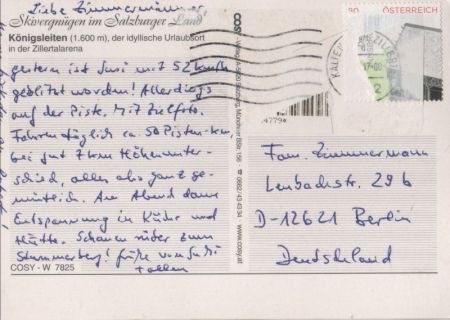 Liebe Zimmermänner,
Skivergnügen im Salzburger Land
Königsleiten (1.600 m), der idyllische Urlaubsort
in der Zillertalarena
gestern ist Susi mit 52 km/h
geblitzt worden! Allerdings
auf der Piste. Mit Zielfoto.
Fahren täglich ca. 50 Pisten-km,
bei gut 7 km Höhenunter-
schied, alles also ganz ge-
mütlich. Am Abend dann
Entspannung in Küche und
Hütte. Schauen rüber zum
Grüße von Susi
COSY - W 7825
COSY
www.cosy.at
4779
ÖSTERREICH
Fam. Zimmermann
Lenbachstr. 29b
D-12621 Berlin
Deutschland